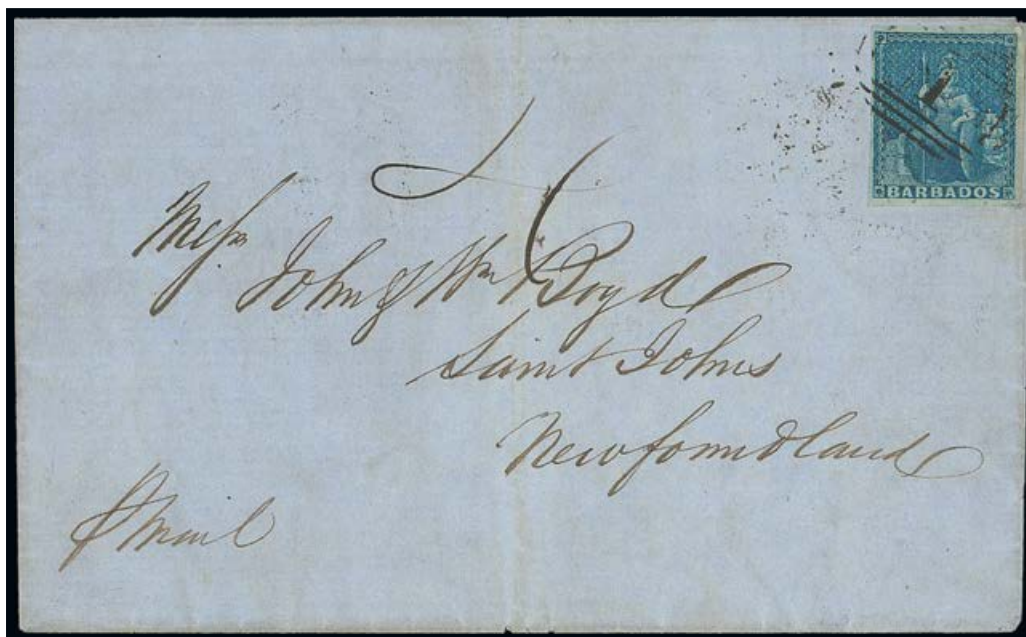 BARBADOS
Messrs
John & Wm Boyd
Saint Johns
Newfoundland
p Mail